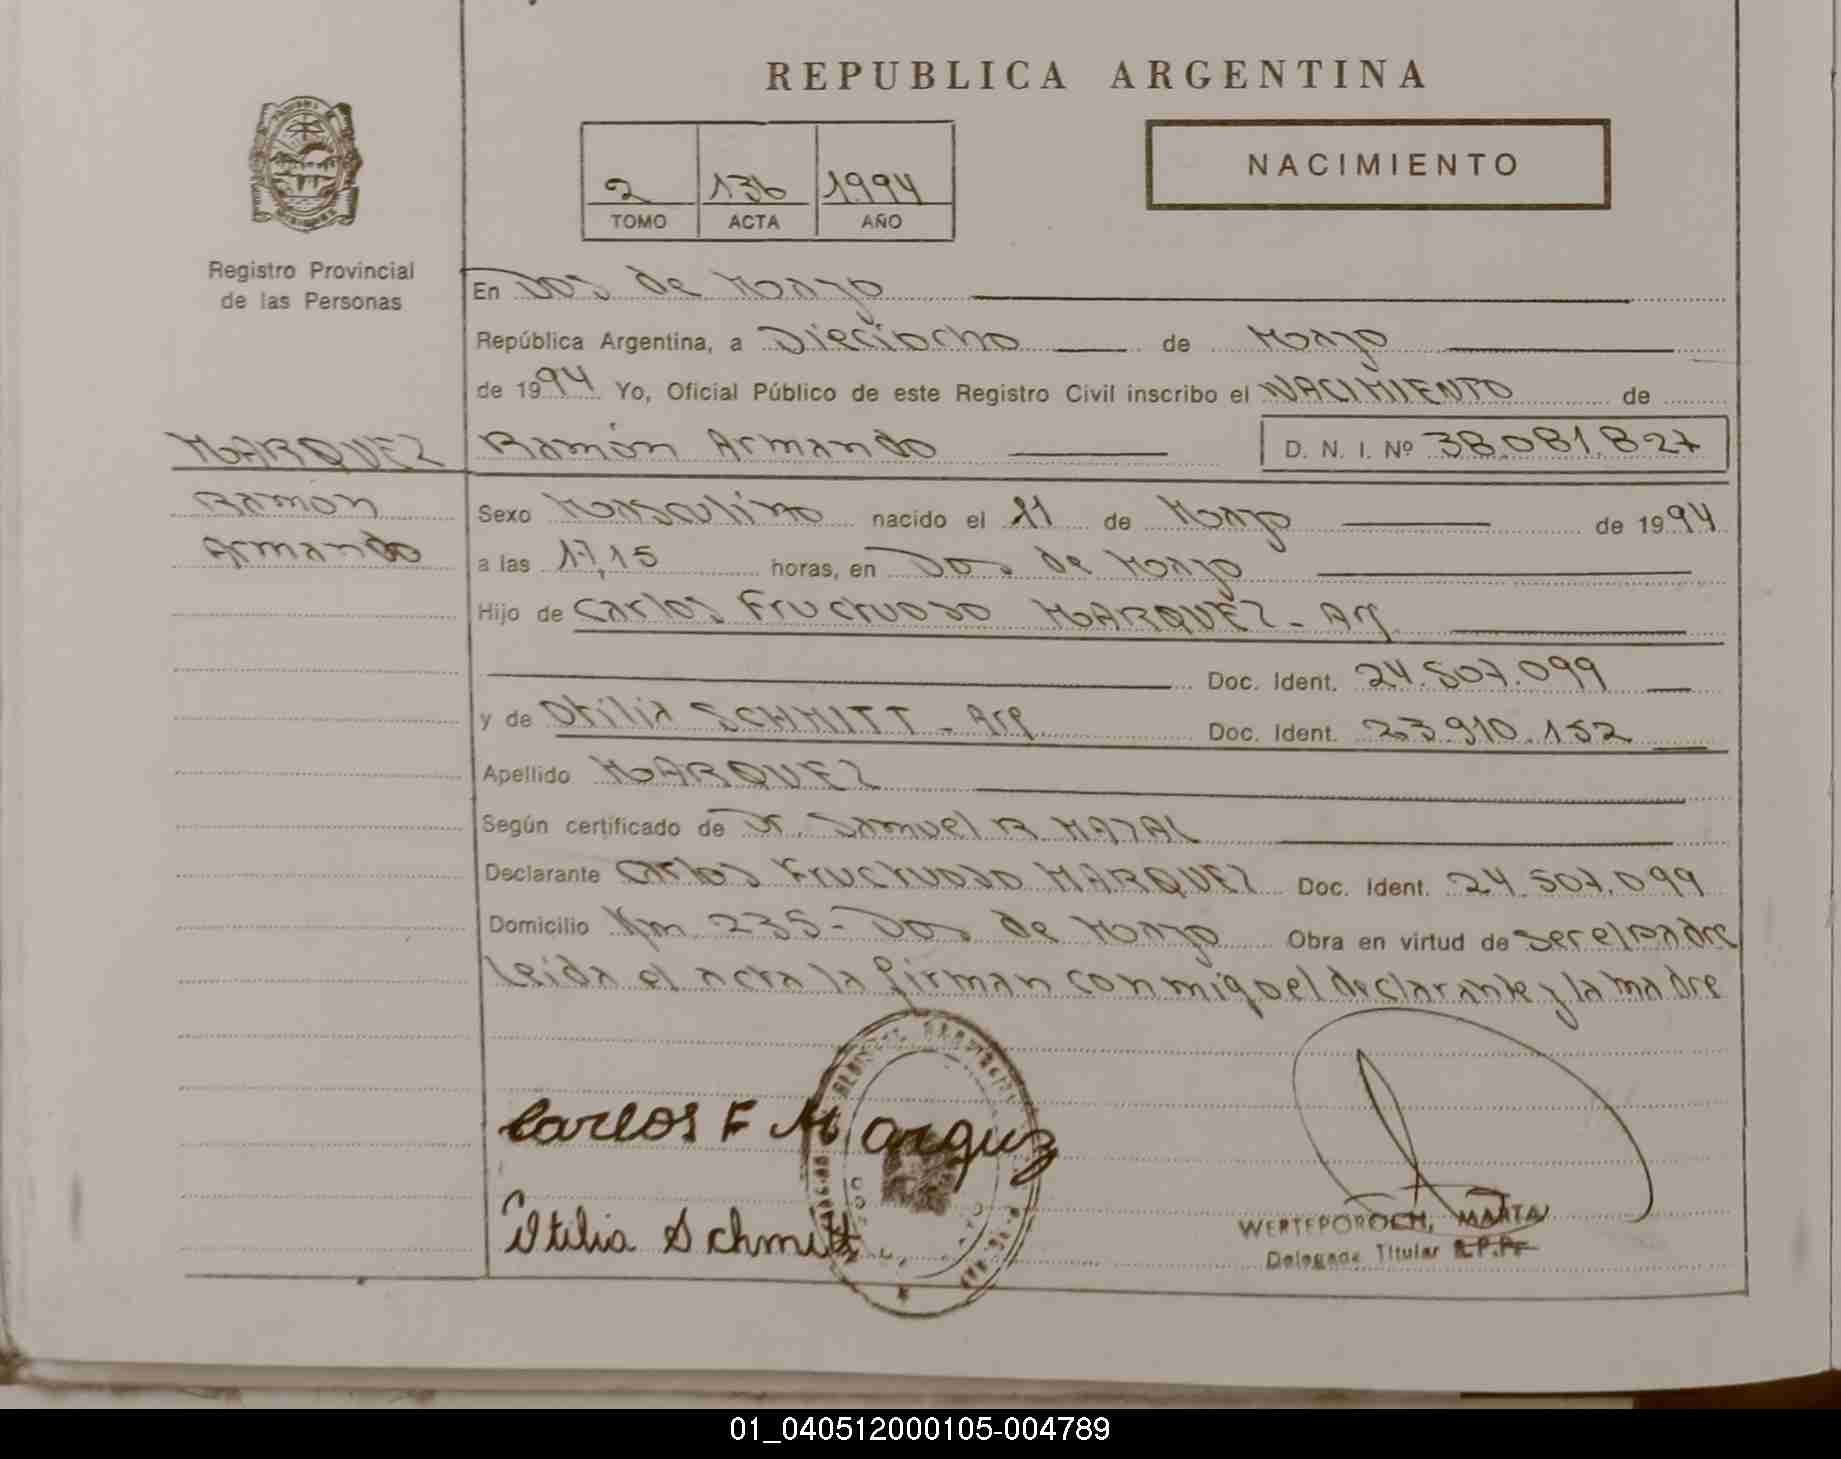 REPUBLICA ARGENTINA
NACIMIENTO
2 136 1994
TOMO ACTA AÑO
Registro Provincial
de las Personas
En Dos de Mayo
República Argentina, a Dieciocho de Marzo
de 1994 Yo, Oficial Público de este Registro Civil inscribo el NACIMIENTO de
MARQUEZ Ramón Armando D. N. I. Nº 38.081.827
Ramón
Armando
Sexo Masculino nacido el 11 de Marzo de 1994
a las 17,15 horas, en Dos de Mayo
Hijo de Carlos Fructuoso MARQUEZ - Arg.
Doc. Ident. 24.507.099
y de Otilia SCHMITT - Arg Doc. Ident. 23.910.152
Apellido MARQUEZ
Según certificado de Dr. Samuel R
Declarante Carlos Fructuoso MARQUEZ Doc. Ident. 24.507.099
Domicilio Km 235 - Dos de Mayo Obra en virtud de ser el padre
Leida el acta la firman conmigo el declarante y la madre
Carlos F Marquz
Otilia Schmitt
WERTEPOROCH, MARTA
Delegada Titular R.P.P.
01_040512000105-004789